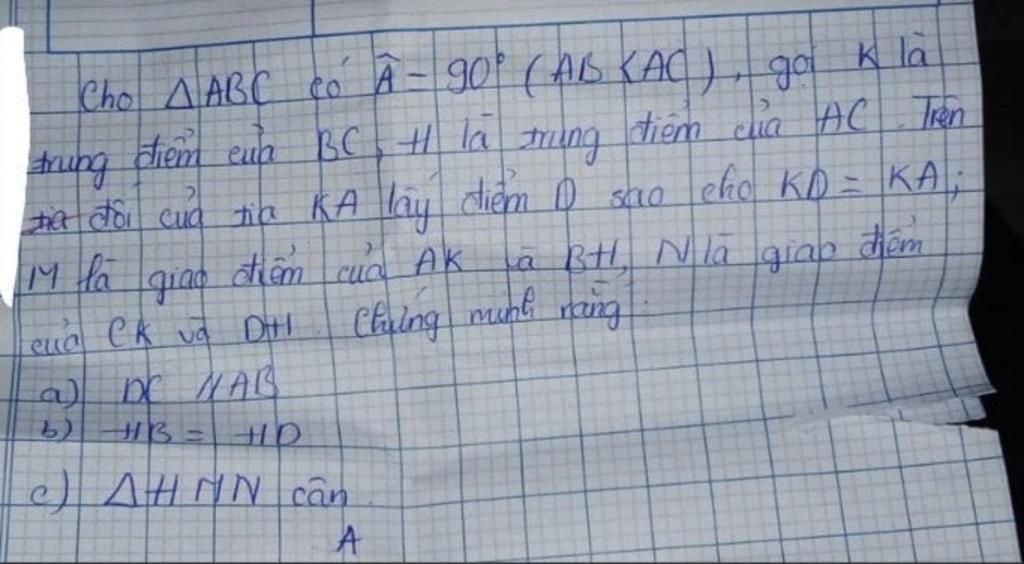 Cho △ABC có Â = 90° (AB < AC), gọi K là
trung điểm của BC, H là trung điểm của AC. Trên
tia đối của tia KA lấy điểm D sao cho KD = KA;
M là giao điểm của AK và BH, N là giao điểm
của CK và DH. Chứng minh rằng:
a) DC // AB
b) HB = HD
c) △HMN cân.
A